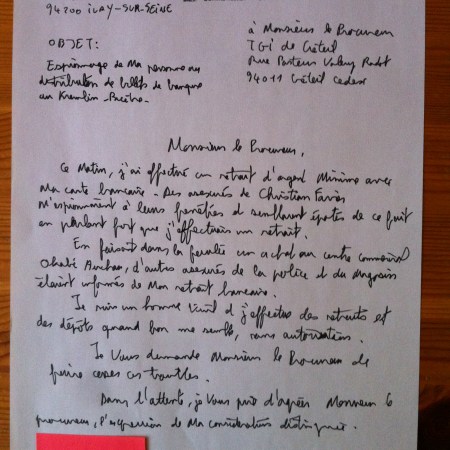 94200 IVRY-SUR-SEINE
à Monsieur le Procureur
TGI de Créteil
Rue Pasteur Valery Radot
94011 Créteil Cedex
OBJET:
Espionnage de Ma personne au
distributeur de billets de banque
au Kremlin-Bicêtre-
Monsieur le Procureur,
Ce Matin, j'ai effectué un retrait d'argent Minime avec
Ma carte bancaire - Des
M'espionnaient à leurs fenêtres et semblaient épatés de ce fait
en parlant fort que j'effectuais un retrait.
En faisant dans la foulée un achat au centre commercial
Okabé Auchan, d'autres de la police et du
étaient informés de Mon retrait bancaire.
Je suis un homme et j'effectue des retraits et
des dépôts quand bon me semble, sans autorisation.
Je Vous demande Monsieur le Procureur de
faire cesser ces troubles.
Dans l'attente, je Vous prie d'agréer Monsieur le
procureur, l'expression de Ma considération distinguée.